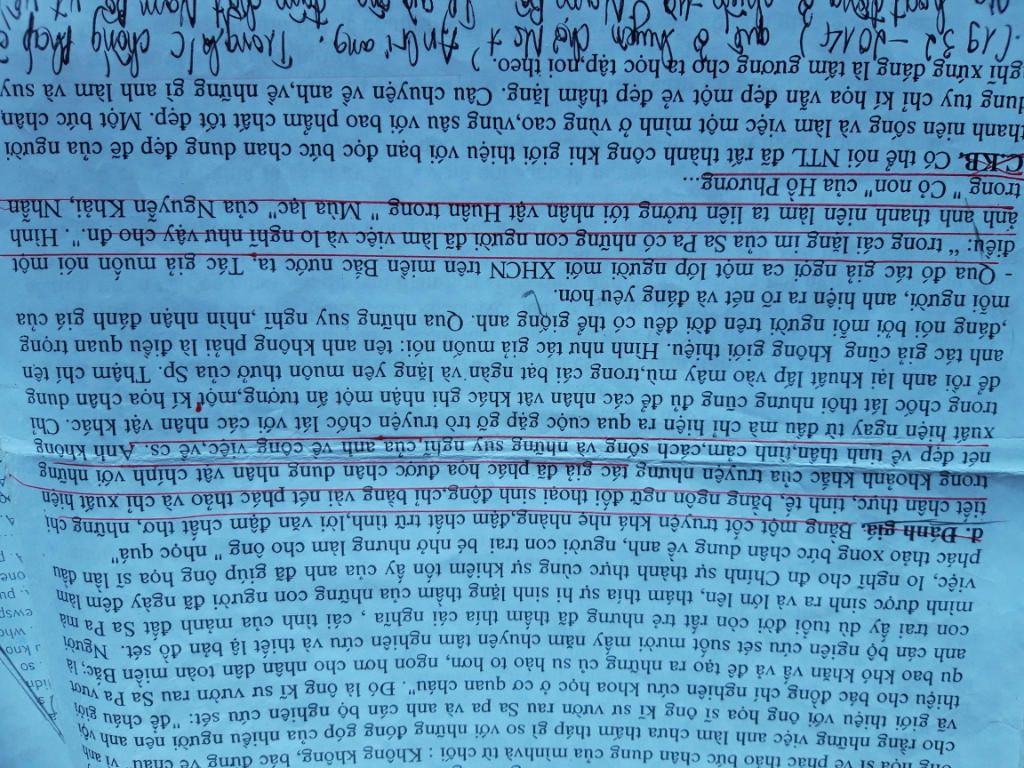 ông họa sĩ vẽ phác thảo bức chân dung của mìnhvà từ chối : Không không, bác đừng vẽ cháu" vì anh
cho rằng những việc anh làm chưa thấm tháp gì so với những đóng góp của nhiều người nên anh vội
và giới thiệu với ông họa sĩ ông kĩ sư vườn rau Sa pa và anh cán bộ nghiên cứu sét: "để cháu giới
thiệu cho bác đồng chí nghiên cứu khoa học ở cơ quan cháu". Đó là ông kĩ sư vườn rau Sa Pa vượt
qu bao khó khăn vả và để tạo ra những củ su hào to hơn, ngon hơn cho nhân dân toàn miền Bắc; là
anh cán bộ ngiên cứu sét suốt mười mấy năm chuyên tâm nghiên cứu và thiết lạ bản đồ sét. Người
con trai ấy dù tuổi đời còn rất trẻ nhưng đã thấm thía cái nghĩa , cái tình của mảnh đất Sa Pa mà
mình được sinh ra và lớn lên, thấm thía sự hi sinh lặng thầm của những con người đã ngày đêm làm
việc, lo nghĩ cho đn Chính sự thành thực cùng sự khiêm tốn ấy của anh đã giúp ông họa sĩ lần đầu
phác thảo xong bức chân dung về anh, người con trai bé nhở nhưng làm cho ông " nhọc quá"
d. Đánh giá. Bằng một cốt truyện khá nhẹ nhàng,đậm chất trữ tình,lời văn đậm chất thơ, những chi
tiết chân thực, tinh tế, bằng ngôn ngữ đối thoại sinh động,chỉ bằng vài nét phác thảo và chỉ xuất hiện
trong khoảnh khắc của truyện nhưng tác giả đã phác họa được chân dung nhân vật chính với những
nét đẹp về tinh thần,tình cảm,cách sống và những suy nghĩ của anh về công việc,về cs. Anh không
xuất hiện ngay từ đầu mà chỉ hiện ra qua cuộc gặp gỡ trò truyện chốc lát với các nhân vật khác. Chỉ
trong chốc lát thôi nhưng cũng đủ để các nhân vât khác ghi nhận một ấn tượng,một kí họa chân dung
để rồi anh lại khuất lấp vào mây mù,trong cái bạt ngàn và lặng yên muôn thưở của Sp. Thậm chí tên
anh tác giả cũng không giới thiệu. Hình như tác giả muốn nói: tên anh không phải là điều quan trọng
,đáng nói bởi mỗi người trên đời đều có thể giống anh. Qua những suy nghĩ ,nhìn nhận đánh giá của
mỗi người, anh hiện ra rõ nét và đáng yêu hơn.
- Qua đó tác giả ngợi ca một lớp người mới XHCN trên miền Bắc nước ta. Tác giả muốn nói một
điều: " trong cái lặng im của Sa Pa có những con người đã làm việc và lo nghĩ như vậy cho đn.". Hình
ảnh anh thanh niên làm ta liên tưởng tới nhân vật Huân trong " Mùa lạc" của Nguyễn Khải, Nhẫn
trong " Cỏ non" của Hồ Phương...
C.KB. Có thể nói NTL đã rất thành công khi giới thiệu với bạn đọc bức chân dung đẹp đẽ của người
thanh niên sống và làm việc một mình ở vùng cao,vùng sâu với bao phẩm chất tốt đẹp. Một bức chân
dung tuy chỉ kí họa vẫn đẹp một vẻ đẹp thầm lặng. Câu chuyện về anh,về những gì anh làm và suy
nghĩ xứng đáng là tấm gương cho ta học tập,noi theo.
(1932 - 2014) quê ở huyện Chợ Mới, An Giang. Trong k/c chống Pháp